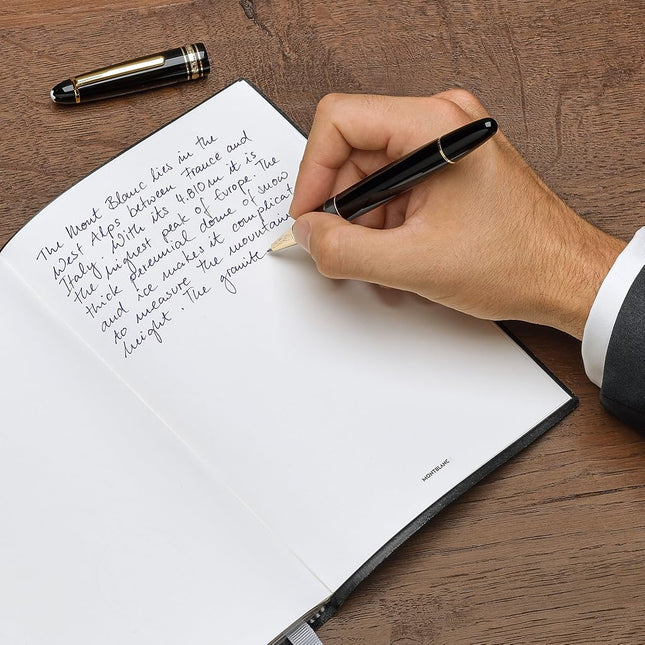 The Mont Blanc lies in the
West Alps between France and
Italy. With its 4.810 m it is
the highest peak of Europe. The
thick perennial dome of snow
and ice makes it complicat
to measure the mountain
height. The granite
MONTBLANC